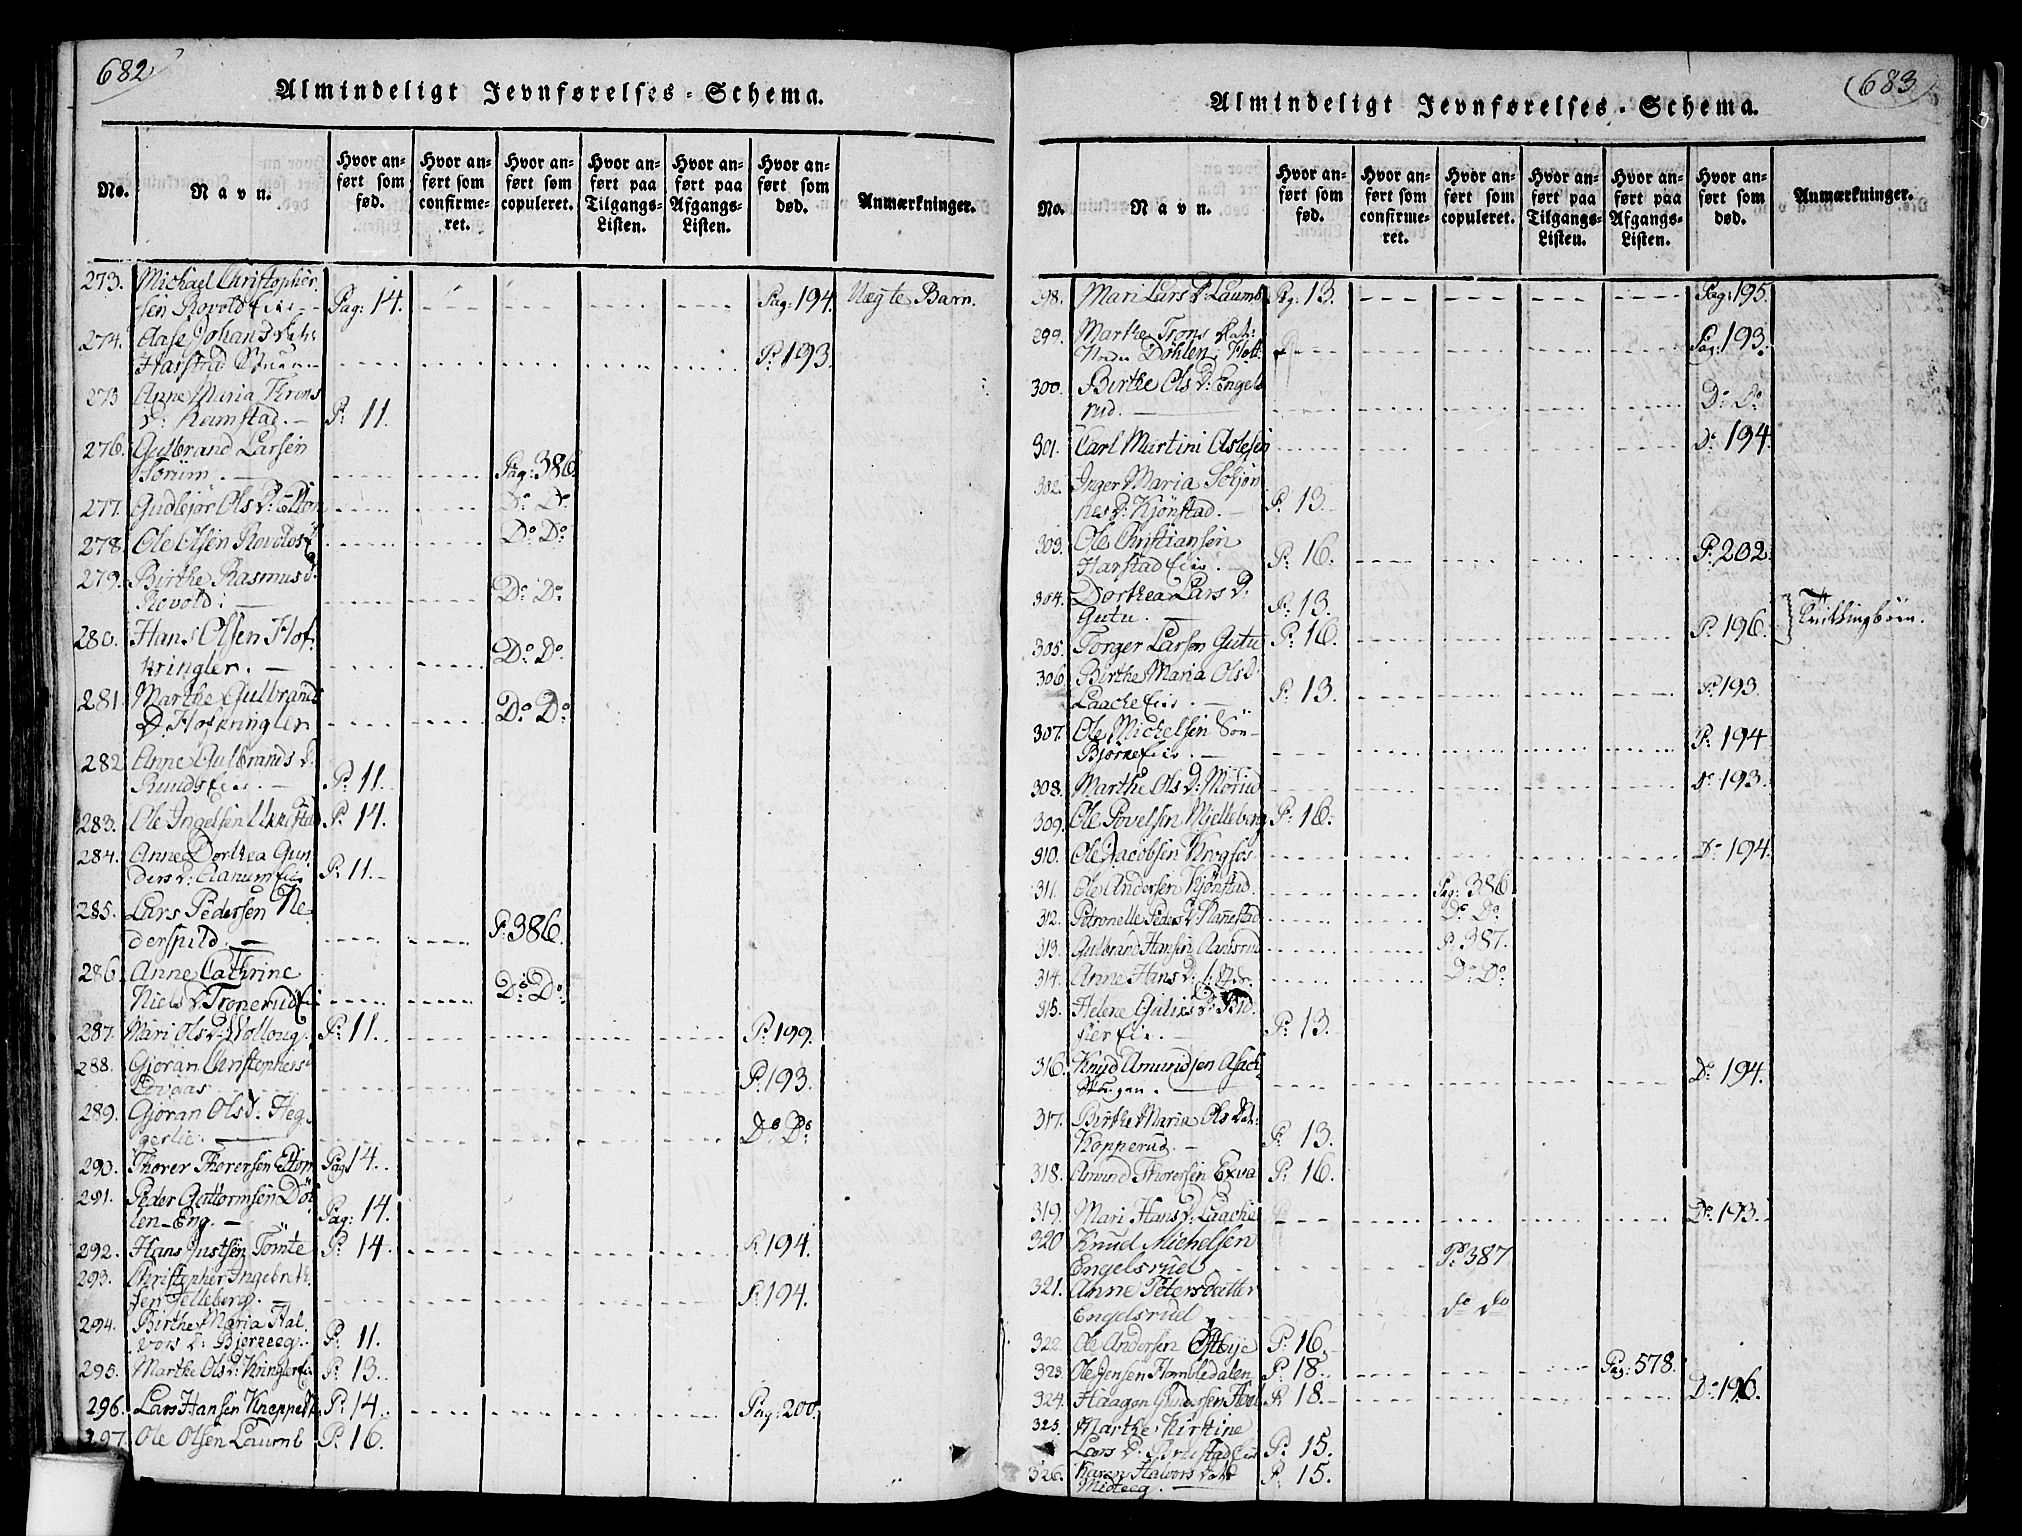 682
Almindeligt Jevnførelses-Schema.
No. | Navn. | Hvor anført som fød. | Hvor anført som confirmeret. | Hvor anført søm copuleret. | Hvor anført paa Tilgangs-Listen. | Hvor anført paa Afgangs-Listen. | Hvor anført som død. | Anmærkninger.
273. Michael Christopher-
sen Rovold Eier Pag: 14. Pag: 194. Uægte Barn.
274. Aase Johans Datr:
Harstad P: 193.
273 Anne Maria Trons
D: Ramstad. P: 11.
276. Gulbrand Larsen
Sorum. Pag: 386.
277. Gudbjør Ols D: Elton Do Do
278. Ole Olsen Rovolds Do Do
279. Birthe Rasmus d.
Rovold: Do Do
280. Hans Olsen Hof-
kringler. Do Do
281. Marthe Gulbrands
D. Hofkringler Do Do
282 Anne Gulbrands D.
Runds Eier. P: 11.
283. Ole Ingelsen P: 14.
284. Anne Dorthea Gun
ders D: Aanum Eier P: 11.
285. Lars Pedersen Ne-
derspild. P. 386.
286. Anne Cathrine
Niels D Tronerud Do Do
287. Mari Ols D: Wollong. P: 11. P: 199.
288. Gjoran Christophers
P. 193.
289. Gjoran Ols D. Heg
gerlie. Do Do
290. Thorer Thorersen Elton Pag 14.
291. Peder Guttormsen Døh
len-Eng. Pag: 14.
292. Hans Justsen Tømte P: 14 P. 194.
293. Christopher Ingebreth
sen Jelleberg. P. 194.
294. Birthe Maria Hal
vors D: Bjerzeeg. P: 11.
295. Marthe Ols D: Kringler P: 13.
296. Lars Hansen P: 14. Pag: 200.
297. Ole Olsen Laumb P: 16.
683
Almindeligt Jevnførelses-Schema.
No. | Navn. | Hvor anført som fød. | Hvor anført som confirmeret. | Hvor anført som copuleret. | Hvor anført paa Tilgangs-Listen. | Hvor anført paa Afgangs-Listen. | Hvor anført som død. | Anmærkninger.
298. Mari Lars D: Laumb Pg. 13. Pag: 195.
299. Marthe Trons Dat:
Dohlen Pag: 193.
300. Birthe Ols D: Engels
rud. Do Do
301. Carl Martini Aslesen Do 194.
302. Inger Maria
D: Kjønstad. P: 13.
303. Ole Christiansen
Harstad Eier. P: 16. P. 202.
304. Dorthea Lars D.
Gutu. P: 13. P. 196. Tvillingbørn.
305. Torger Larsen Gutu P: 16.
306. Birthe Maria Ols D.
Laache Eier. P. 13. P. 193.
307. Ole Michelsen Søn-
Bjørke Eier. P. 194
308. Marthe Ols D: Morud Do 193.
309. Ole Povelsen Mielleberg P: 16.
310. Ole Jacobsen Krogfos Do 194.
311. Ole Andersen Kjønstad. Pag: 386
312. Petronelle Peders D Ramstad Do Do
313. Gulbrand Hansen Aamodrud P. 387.
314. Anne Hans D: Do Do
315. Helene P: 13.
316. Knud Amundsen
Haugen. Do 194.
317. Birthe Maria Ols Dat:
Kopperud. P. 13.
318. Amund Thorersen Exva P: 16.
319. Mari Hans D: Laache Do 193.
320 Knud Michelsen
Engelsrud Pg 387
321. Anne Petersdatter
Engelsrud do do
322. Ole Andersen Østbye P: 16.
323. Ole Jensen Hambledalen P. 18. Pag: 578.
324. Haagen Gundersen P. 18. Do 196.
325. Marthe Kirstine
Lars D. P: 15.
326. Karen Halvors Datr
Midteeg. P: 15.